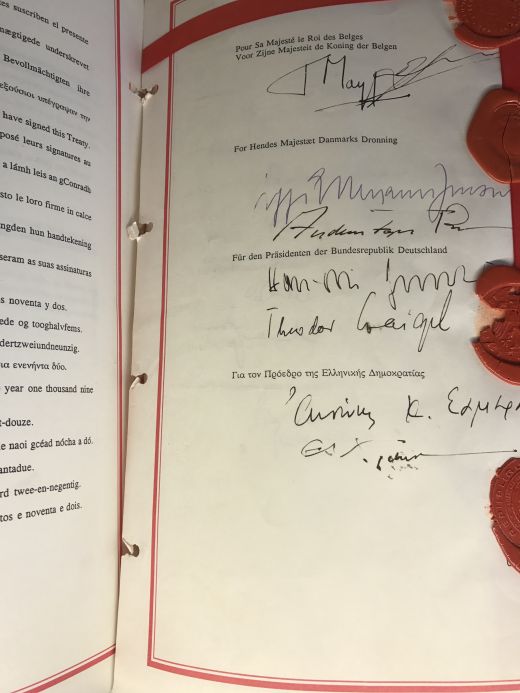 tes suscriben el presente
ægtigede underskrevet
Bevollmächtigten ihre
εξούσιοι υπέγραψαν την
have signed this Treaty.
posé leurs signatures au
a lámh leis an gConradh
sto le loro firme in calce
ngden hun handtekening
seram as suas assinaturas
s noventa y dos.
ede og tooghalvfems.
dertzweiundneunzig.
ια ενενήντα δύο.
year one thousand nine
t-douze.
e naoi gcéad nócha a dó.
antadue.
rd twee-en-negentig.
tos e noventa e dois.
Pour Sa Majesté le Roi des Belges
Voor Zijne Majesteit de Koning der Belgen
For Hendes Majestæt Danmarks Dronning
Für den Präsidenten der Bundesrepublik Deutschland
Theodor Waigel
Για τον Πρόεδρο της Ελληνικής Δημοκρατίας